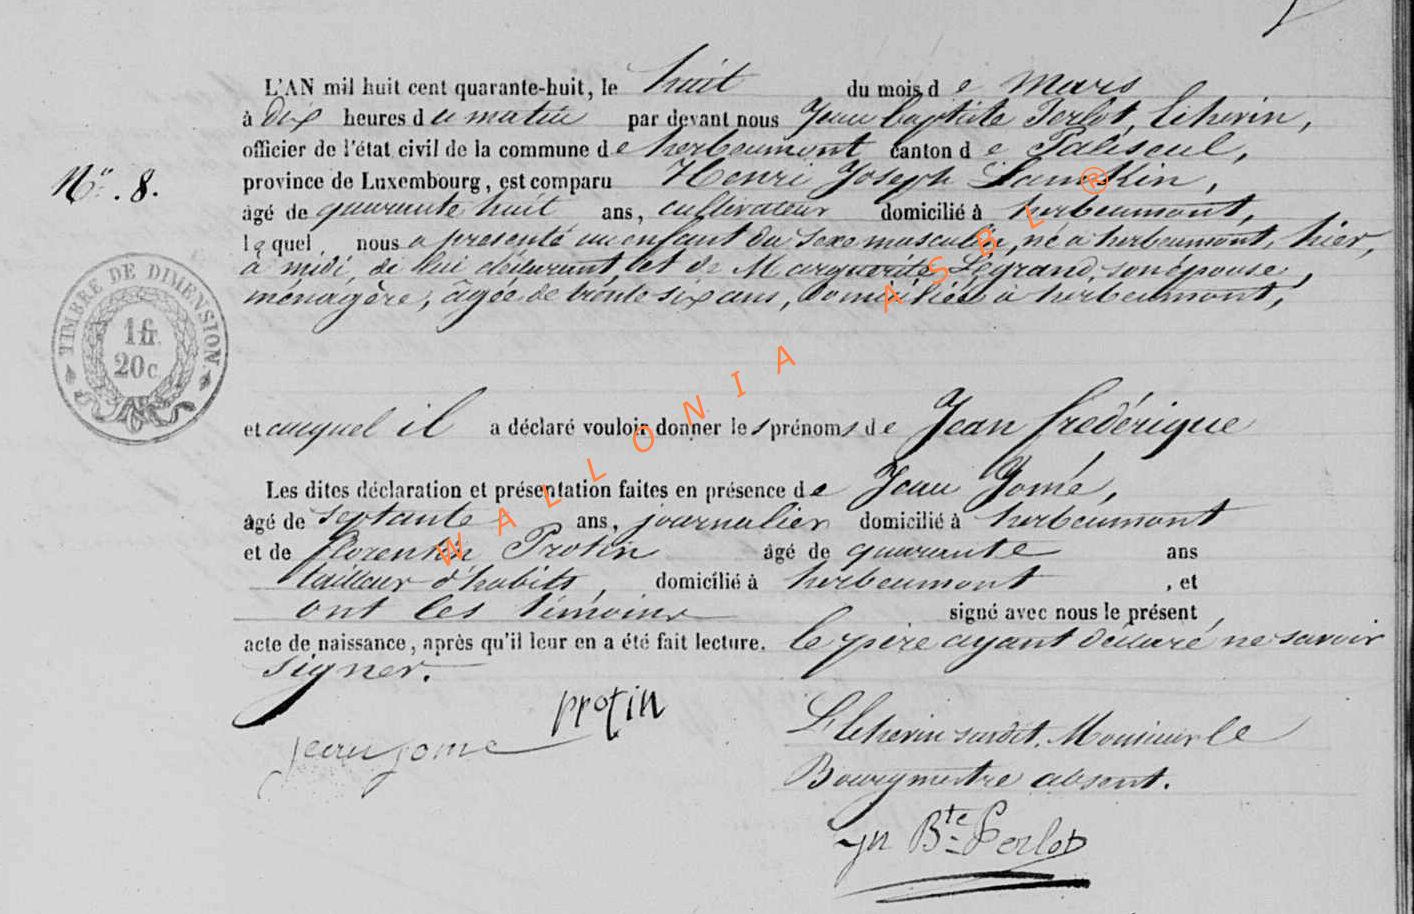 L'AN mil huit cent quarante-huit, le huit du mois de Mars
à dix heures du matin par devant nous Jean Baptiste Perlot, Echevin,
officier de l'état civil de la commune de herbeumont canton de Paliseul,
Nº. 8.
province de Luxembourg, est comparu Henri Joseph Lamkin,
âgé de quarante huit ans, cultivateur domicilié à herbeumont,
lequel nous a présenté un enfant du sexe masculin, né à herbeumont, hier,
à midi, de lui déclarant, et de Marguerite Legrand, son épouse,
ménagère, âgée de trente six ans, domiciliée à herbeumont,
TIMBRE DE DIMENSION
1 fr.
20 c
et auquel il a déclaré vouloir donner les prénoms de Jean frédérique
Les dites déclaration et présentation faites en présence de Jean Jomé,
âgé de septante ans, journalier domicilié à herbeumont
et de florentin Protin âgé de quarante ans
tailleur d'habits, domicilié à herbeumont, et
ont les témoins signé avec nous le présent
acte de naissance, après qu'il leur en a été fait lecture. le père ayant déclaré ne savoir
signer.
protin
jean jome
L'Echevin susdit, Monsieur le
Bourgmestre absent.
Jn Bte Perlot
WALLONIA ASBL ®